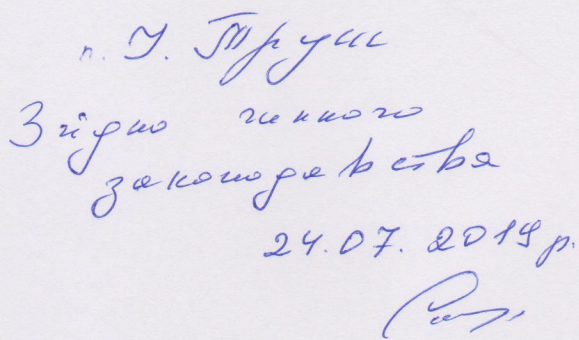 п. У. Труш
Згідно чинного
законодавства
24.07.2019 р.